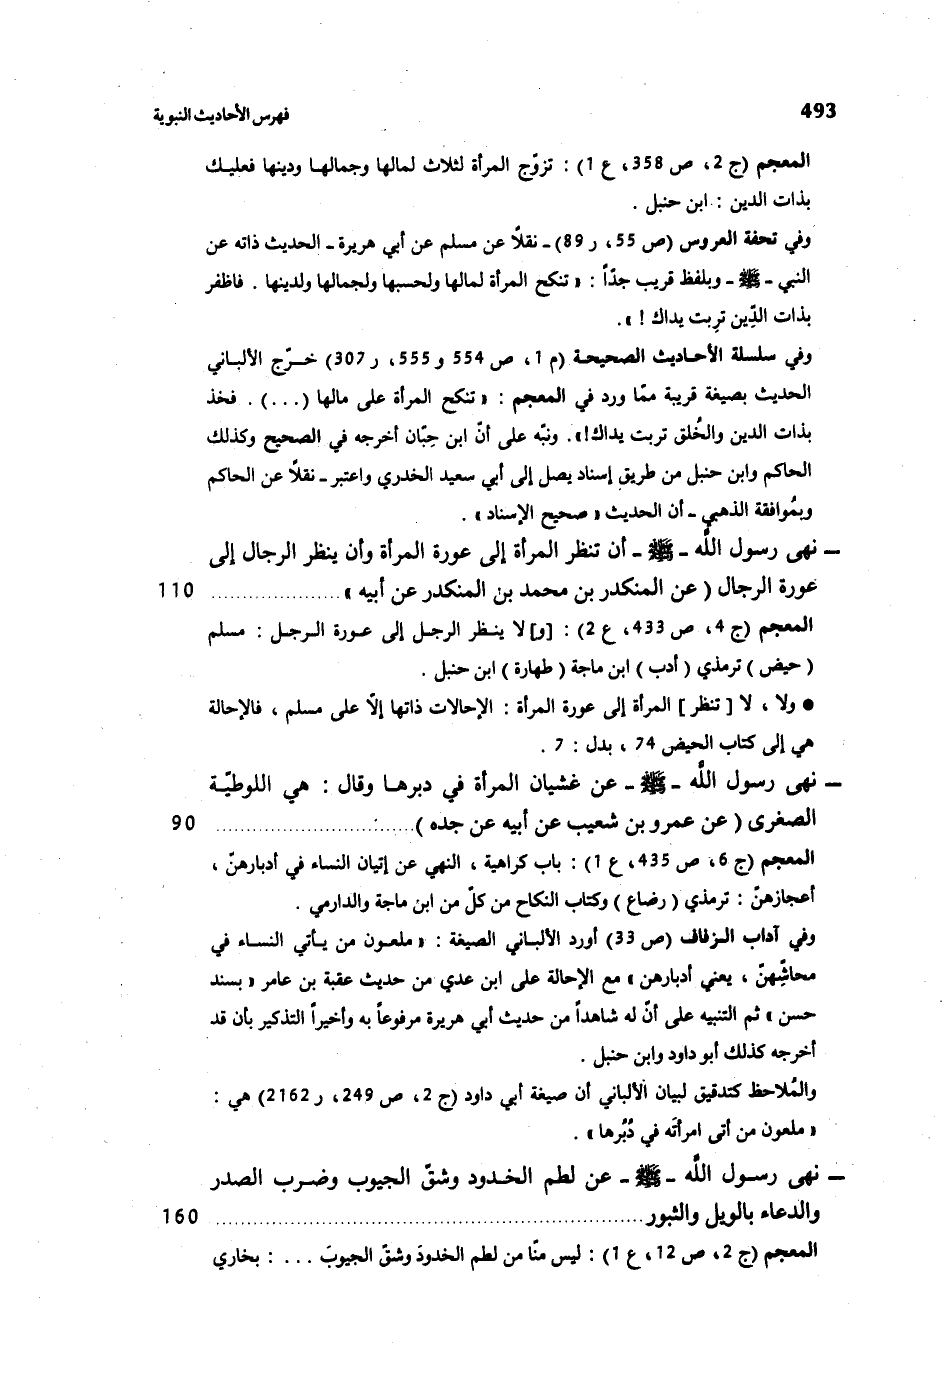 493
فهرس الأحاديث النبوية
المعجم (ج 2، ص 358، ع 1) : تزوّج المرأة لثلاث لمالها وجمالها ودينها فعليك
بذات الدين : ابن حنبل .
وفي تحفة العروس (ص 55، ر 89) ـ نقلاً عن مسلم عن أبي هريرة ـ الحديث ذاته عن
النبي ـ ﷺ ـ وبلفظ قريب جدّاً : « تنكح المرأة لمالها ولحسبها ولجمالها ولدينها . فاظفر
بذات الدِّين تربت يداك ! ».
وفي سلسلة الأحاديث الصحيحة (م 1، ص 554 و 555، ر 307) خرّج الألباني
الحديث بصيغة قريبة ممّا ورد في المعجم : « تنكح المرأة على مالها (...) . فخذ
بذات الدين والخُلق تربت يداك!». ونبّه على أنّ ابن حِبّان أخرجه في الصحيح وكذلك
الحاكم وابن حنبل من طريق إسناد يصل إلى أبي سعيد الخدري واعتبر ـ نقلاً عن الحاكم
وبمُوافقة الذهبي ـ أن الحديث « صحيح الإسناد » .
ـ نهى رسول اللَّه ـ ﷺ ـ أن تنظر المرأة إلى عورة المرأة وأن ينظر الرجال إلى
عورة الرجال ( عن المنكدر بن محمد بن المنكدر عن أبيه » ..................... 110
المعجم (ج 4، ص 433، ع 2) : [و] لا ينظر الرجل إلى عورة الرجل : مسلم
( حيض ) ترمذي ( أدب ) ابن ماجة ( طهارة ) ابن حنبل .
● ولا ، لا [ تنظر ] المرأة إلى عورة المرأة : الإحالات ذاتها إلّا على مسلم ، فالإحالة
هي إلى كتاب الحيض 74 ، بدل : 7 .
ـ نهى رسول اللَّه ـ ﷺ ـ عن غشيان المرأة في دبرها وقال : هي اللوطيّة
الصغرى ( عن عمرو بن شعيب عن أبيه عن جده ) ............................... 90
المعجم (ج 6، ص 435، ع 1) : باب كراهية ، النهي عن إتيان النساء في أدبارهنّ ،
أعجازهنّ : ترمذي ( رضاع ) وكتاب النكاح من كلّ من ابن ماجة والدارمي .
وفي آداب الزفاف (ص 33) أورد الألباني الصيغة : « ملعون من يأتي النساء في
محاشِّهنّ ، يعني أدبارهن » مع الإحالة على ابن عدي من حديث عقبة بن عامر « بسند
حسن » ثم التنبيه على أنّ له شاهداً من حديث أبي هريرة مرفوعاً به وأخيراً التذكير بأن قد
أخرجه كذلك أبو داود وابن حنبل .
والمُلاحظ كتدقيق لبيان الألباني أن صيغة أبي داود (ج 2، ص 249، ر 2162) هي :
« ملعون من أتى امرأتَه في دُبُرها » .
ـ نهى رسول اللَّه ـ ﷺ ـ عن لطم الخدود وشقّ الجيوب وضرب الصدر
والدعاء بالويل والثبور .................................................................. 160
المعجم (ج 2، ص 12، ع 1) : ليس منّا من لطم الخدودَ وشقّ الجيوبَ ... : بخاري